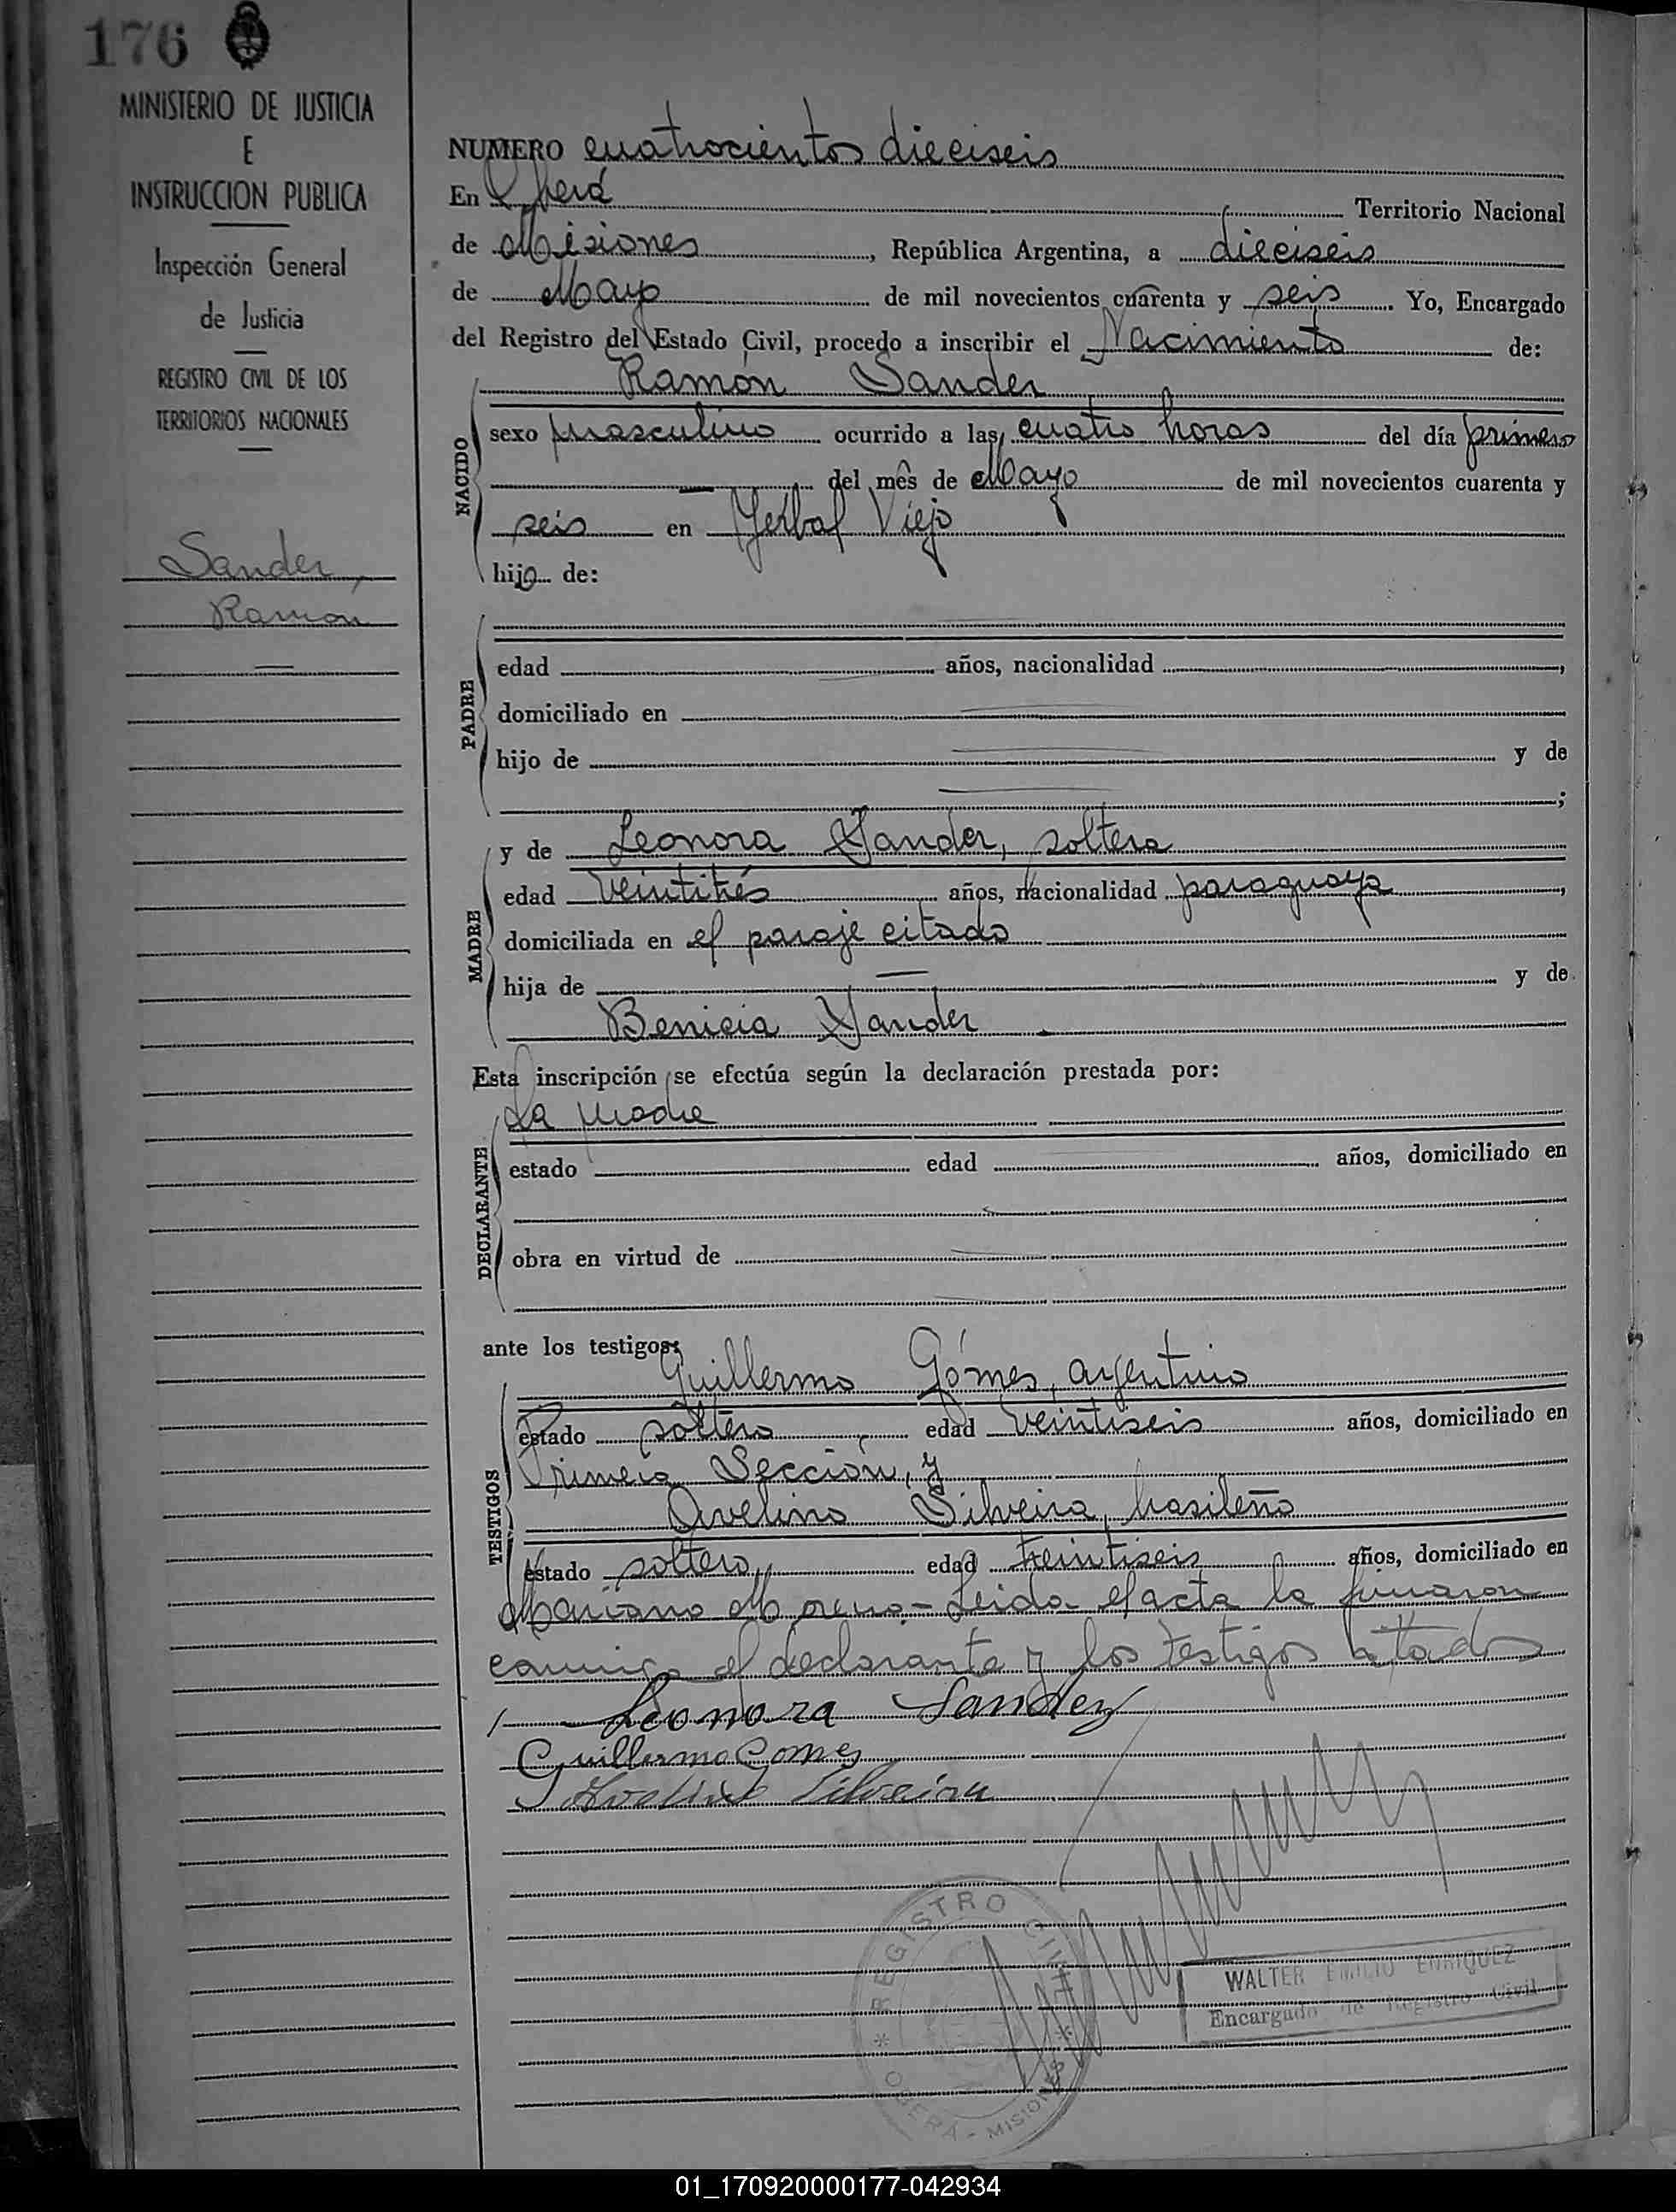 176
MINISTERIO DE JUSTICIA
E
INSTRUCCION PUBLICA
Inspección General
de Justicia
REGISTRO CIVIL DE LOS
TERRITORIOS NACIONALES
Sander,
Ramón
NUMERO cuatrocientos dieciseis
En Oberá Territorio Nacional
de Misiones, República Argentina, a dieciseis
de Mayo de mil novecientos cuarenta y seis. Yo, Encargado
del Registro del Estado Civil, procedo a inscribir el Nacimiento de:
Ramón Sander
NACIDO
sexo masculino ocurrido a las cuatro horas del día primero
del mes de Mayo de mil novecientos cuarenta y
seis en Yerbal Viejo
hijo de:
PADRE
edad años, nacionalidad ,
domiciliado en
hijo de y de
;
MADRE
y de Leonora Sander, soltera
edad veintitrés años, nacionalidad paraguaya,
domiciliada en el paraje citado
hija de — y de
Benicia Sander
Esta inscripción se efectúa según la declaración prestada por:
DECLARANTE
La madre
estado edad años, domiciliado en
obra en virtud de
ante los testigos:
TESTIGOS
Guillermo Gómes, argentino
estado soltero, edad veintiseis años, domiciliado en
Primera Sección, y
Avelino Silveira, brasileño
estado soltero, edad treintiseis años, domiciliado en
Mariano Moreno.- Leida el acta la firmaron
conmigo el declarante y los testigos citados
Leonora Sander
Guillermo Gomes
Avelino Silveira
REGISTRO CIVIL
OBERÁ - MISIONES
WALTER EMILIO ENRIQUEZ
Encargado de Registro Civil
01_170920000177-042934